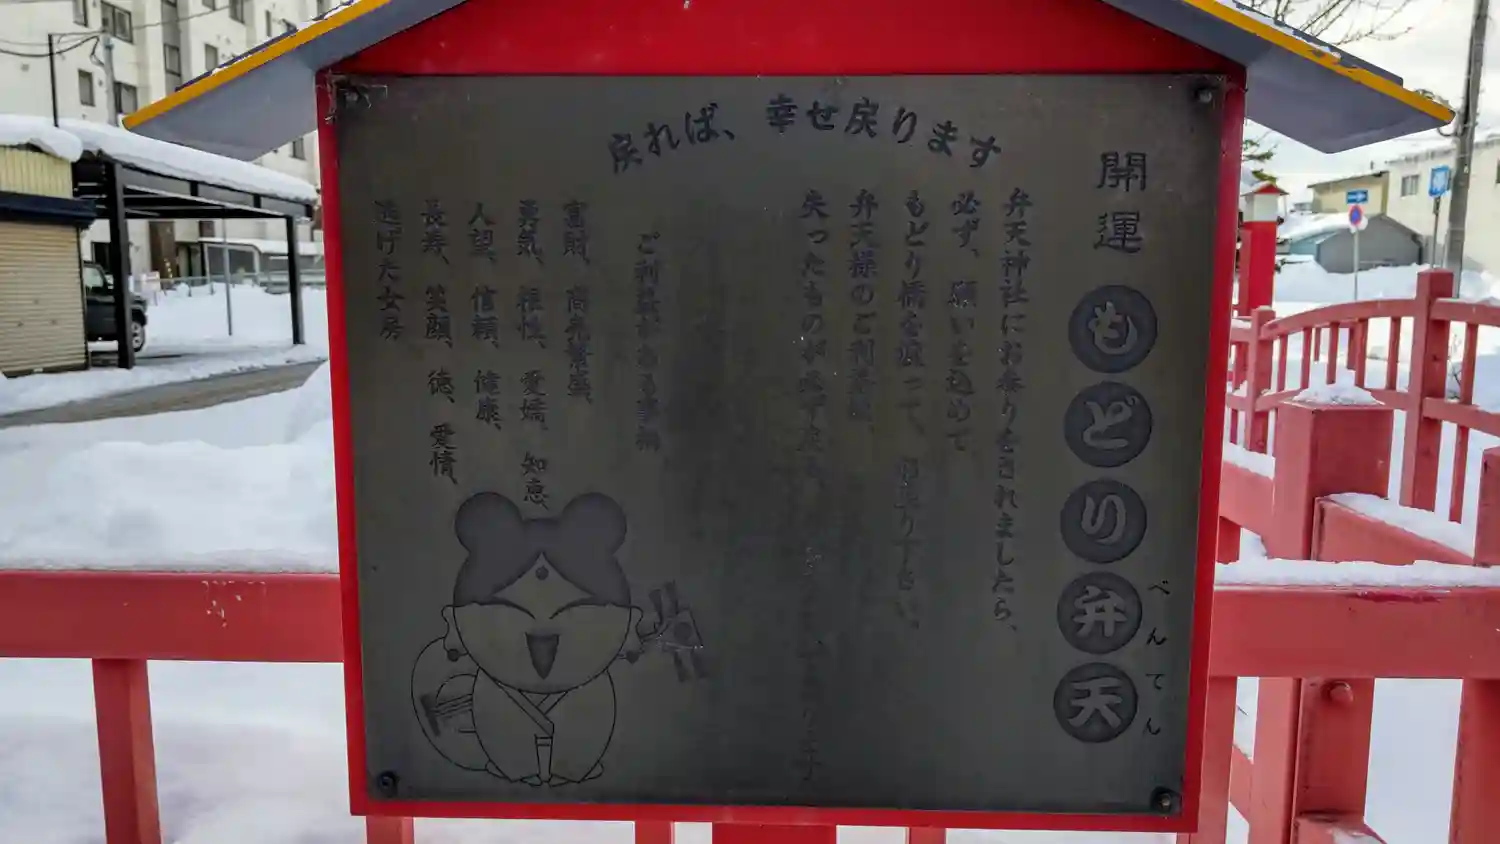 戻れば、幸せ戻ります
開運
もどり弁天
べんてん
弁天神社にお参りをされましたら、
必ず、願いを込めて、
もどり橋を渡って、お戻り下さい。
弁天様のご利益は、
失ったものが必ず戻る
ご利益がある事柄
富財、商売繁盛、
勇気、根性、愛嬌、知恵、
人望、信頼、健康、
長寿、笑顔、徳、愛情、
逃げた女房